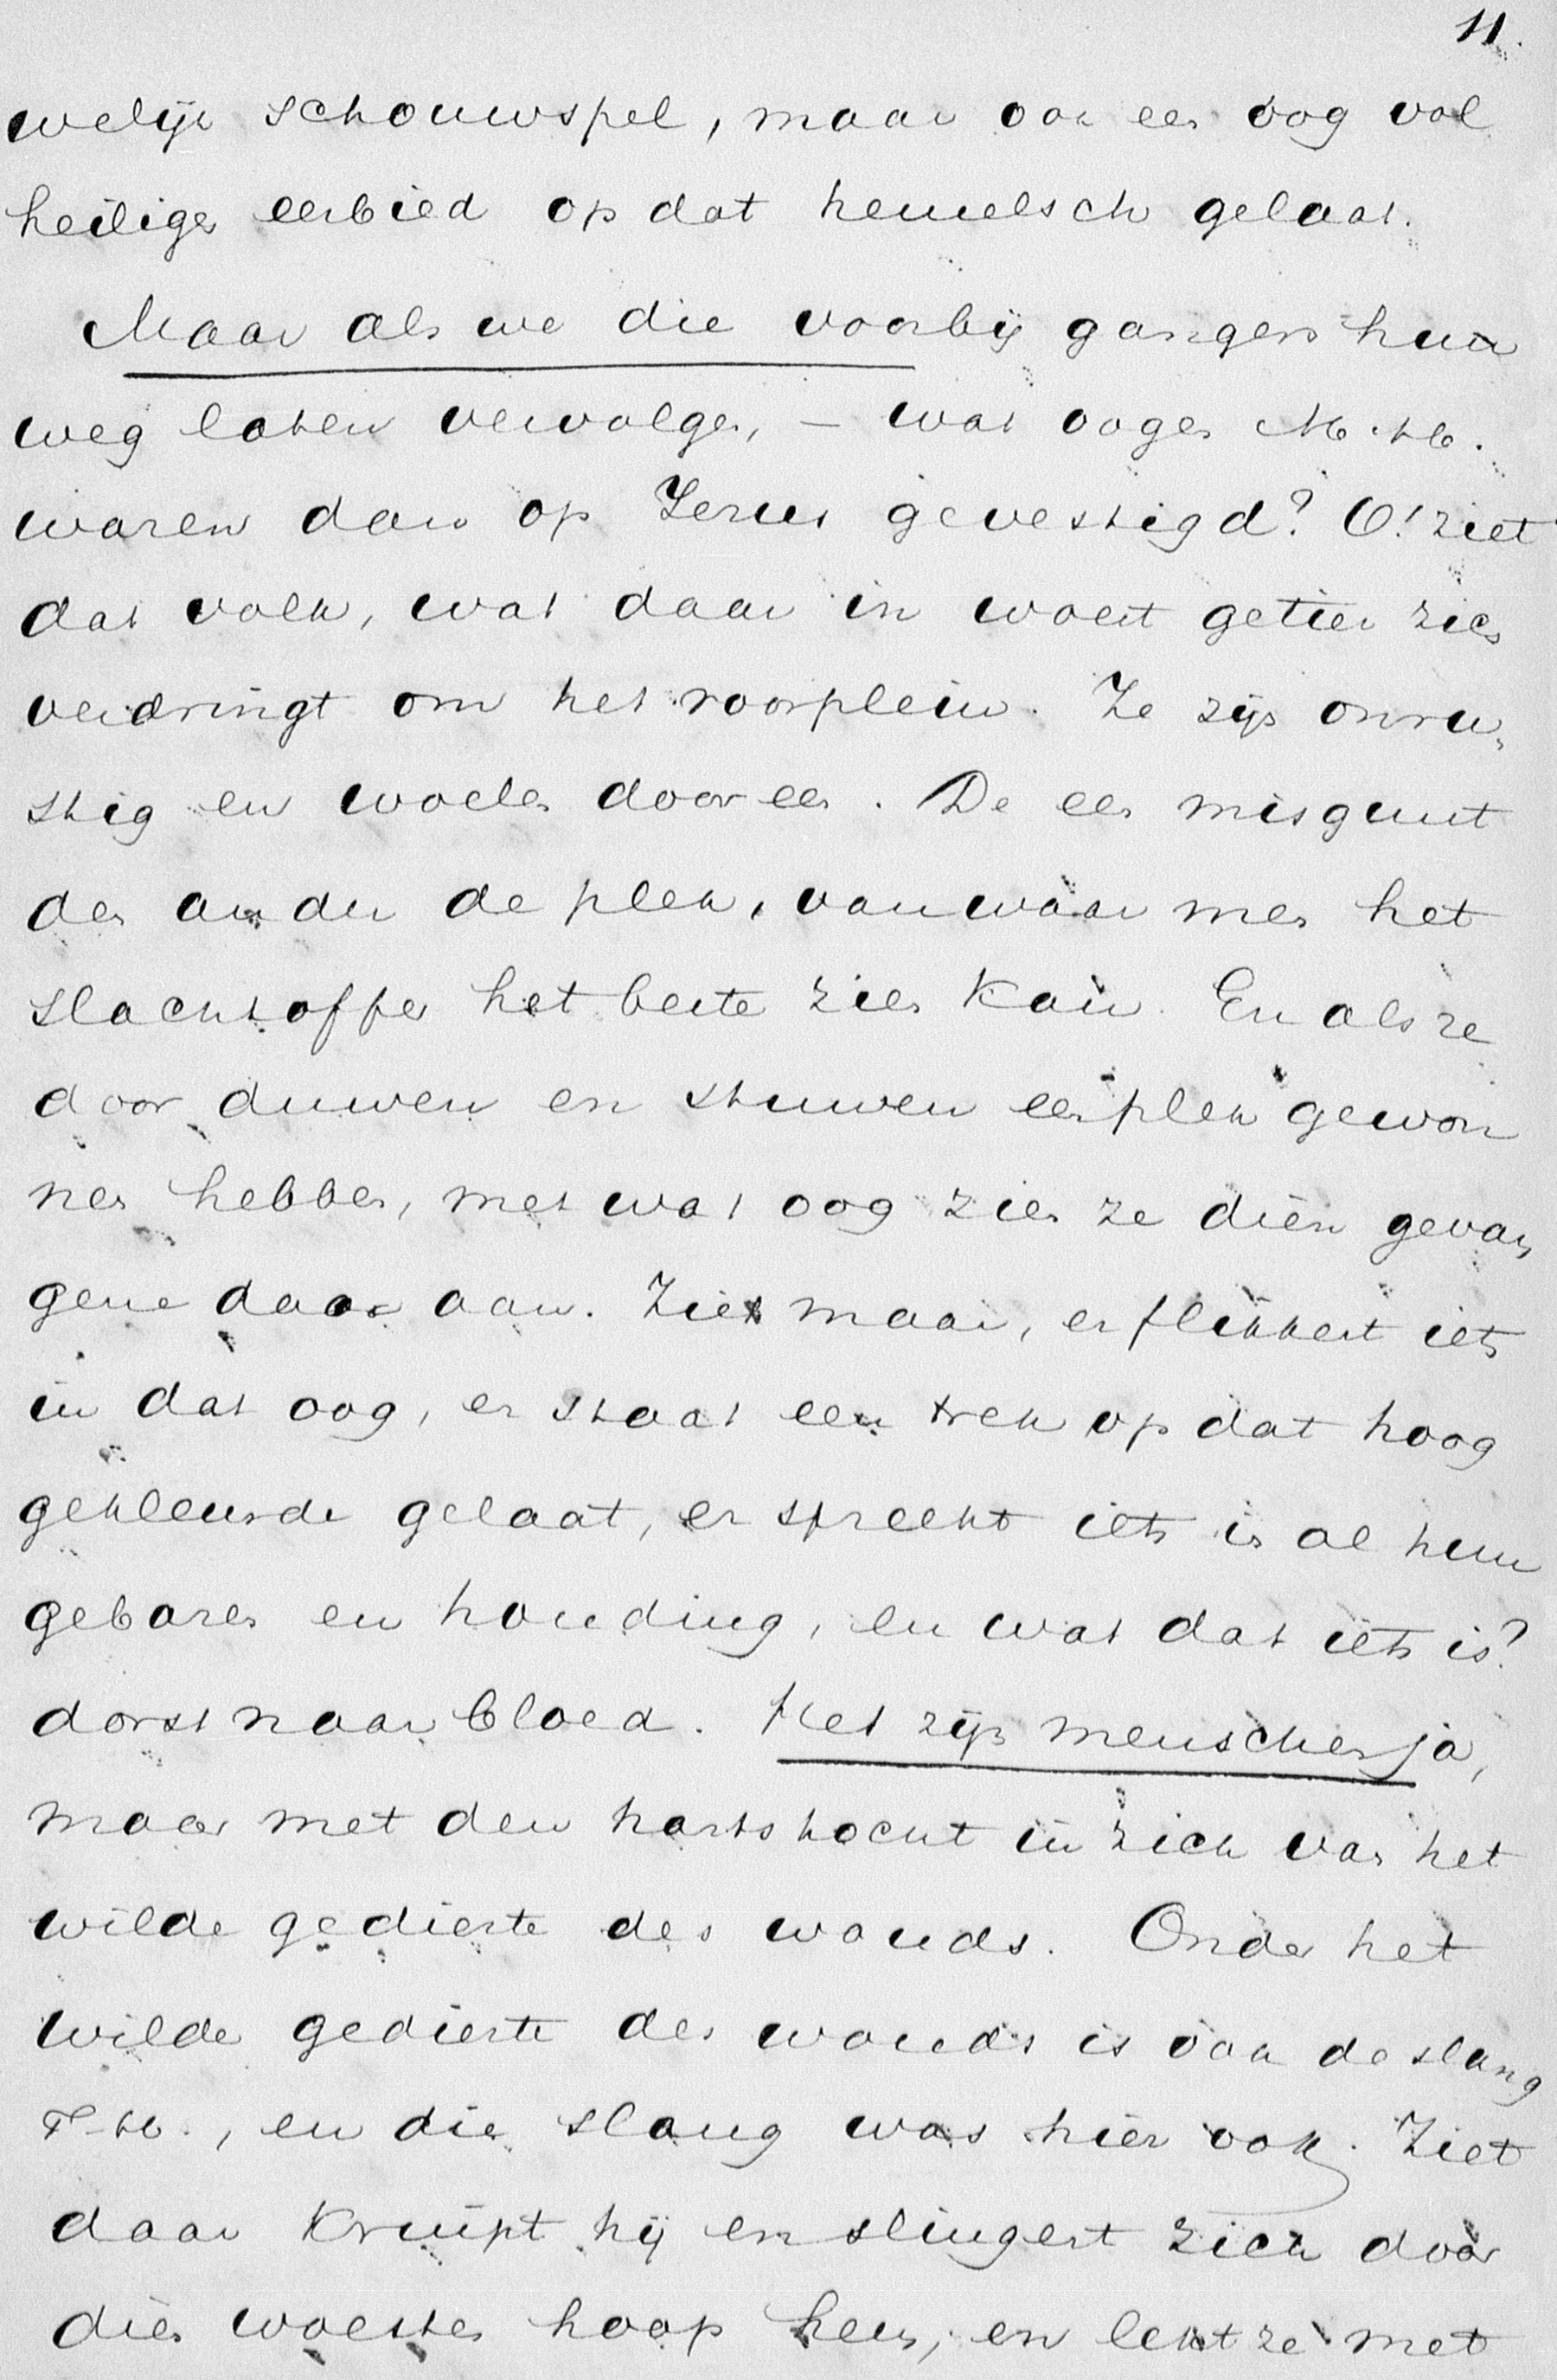 11.
welijk schouwspel, maar ook een oog vol
heiligen eerbied op dat hemelsch gelaat.
Maar als we die voorbij gangers hun
weg laten vervolgen, – wat oogen M. H.
waren dan op Jezus gevestigd? O! ziet
dat volk, wat daar in woest getier zich
verdringt om het voorplein. Ze zijn onru-
stig en woelen dooreen. De een misgunt
den ander de plek, vanwaar men het
slachtoffer het beste zien kan. En als ze
door duwen en stuwen een plek gewon
nen hebben, met wat oog zien ze dien gevan
gene daar aan. Ziet maar, er flikkert iets
in dat oog, er staat een trek op dat hoog
gekleurde gelaat, er spreekt iets in al hun
gebaren en houding, en wat dat iets is?
dorst naar bloed. Het zijn menschen ja,
maar met den hartstocht in zich van het
wilde gedierte des wouds. Onder het
wilde gedierte des wouds is ook de slang
T. H., en die slang was hier ook. Ziet
daar kruipt hij en slingert zich door
dien woesten hoop heen, en lekt ze met